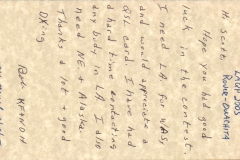 Hi Scott,
Hope you had good
luck in the contest.
I need LA. for WAS,
and would appreciate a
QSL card. I have had
a hard time contacting
any body in LA. I also
need NE + Alaska.
Thanks a lot + good
DXing
Bob